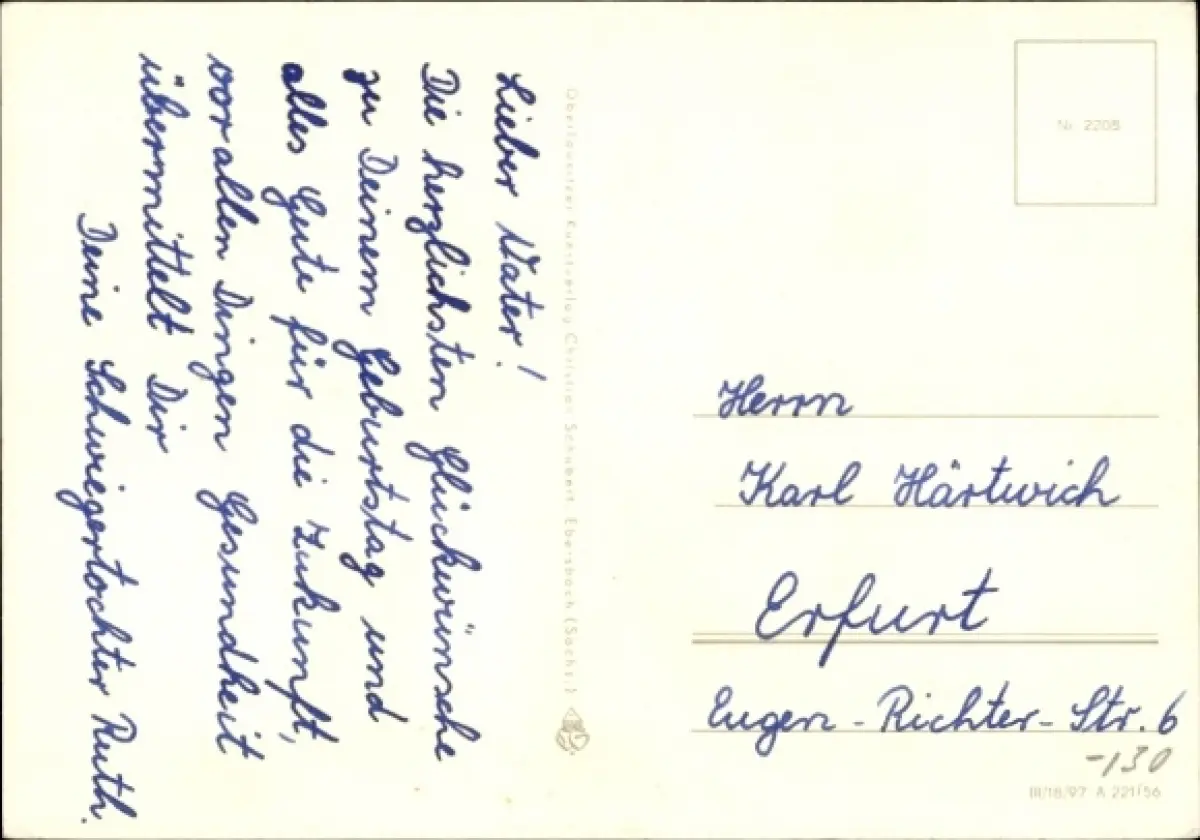 Lieber Vater!
Die herzlichsten Glückwünsche
zu Deinem Geburtstag und
alles Gute für die Zukunft,
vor allen Dingen Gesundheit
übermittelt Dir
Deine Schwiegertochter Ruth.
Oberlausitzer Kunstverlag Christian Schubert, Ebersbach (Sachs.)
Nr. 2208
Herrn
Karl Härtwich
Erfurt
Eugen-Richter-Str. 6
-130
III/18/97 A 221/56